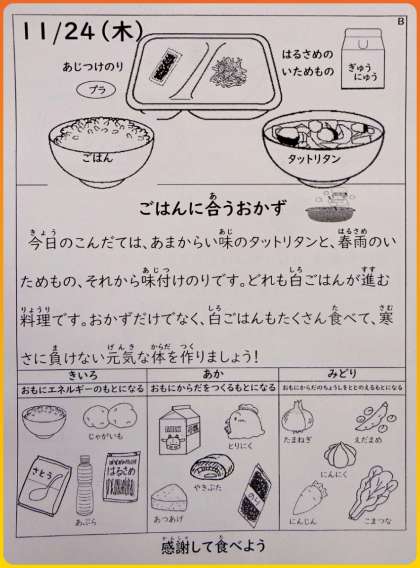 B
11/24(木)
はるさめの
いためもの
ぎゅう
にゅう
あじつけのり
プラ
ごはん
タットリタン
ごはんに合うおかず
今日のこんだては、あまからい味のタットリタンと、春雨のい
ためもの、それから味付けのりです。どれも白ごはんが進む
料理です。おかずだけでなく、白ごはんもたくさん食べて、寒
さに負けない元気な体を作りましょう!
きいろ
おもにエネルギーのもとになる
じゃがいも
さとう
はるさめ
あぶら
あか
おもにからだをつくるもとになる
とりにく
やきぶた
あつあげ
のり
みどり
おもにからだのちょうしをととのえるもとになる
たまねぎ
えだまめ
にんにく
にんじん
こまつな
感謝して食べよう